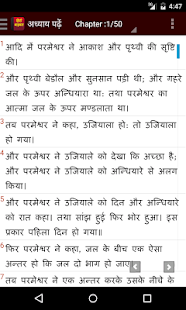 4:47
अध्याय पढ़ें Chapter :1/50
1 आदि में परमेश्वर ने आकाश और पृथ्वी की सृष्टि
की।
2 और पृथ्वी बेडौल और सुनसान पड़ी थी; और गहरे
जल के ऊपर अन्धियारा था: तथा परमेश्वर का
आत्मा जल के ऊपर मण्डलाता था।
3 तब परमेश्वर ने कहा, उजियाला हो: तो उजियाला
हो गया।
4 और परमेश्वर ने उजियाले को देखा कि अच्छा है;
और परमेश्वर ने उजियाले को अन्धियारे से अलग
किया।
5 और परमेश्वर ने उजियाले को दिन और अन्धियारे
को रात कहा। तथा सांझ हुई फिर भोर हुआ। इस
प्रकार पहिला दिन हो गया॥
6 फिर परमेश्वर ने कहा, जल के बीच एक ऐसा
अन्तर हो कि जल दो भाग हो जाए।
7 तब परमेश्वर ने एक अन्तर करके उसके नीचे के